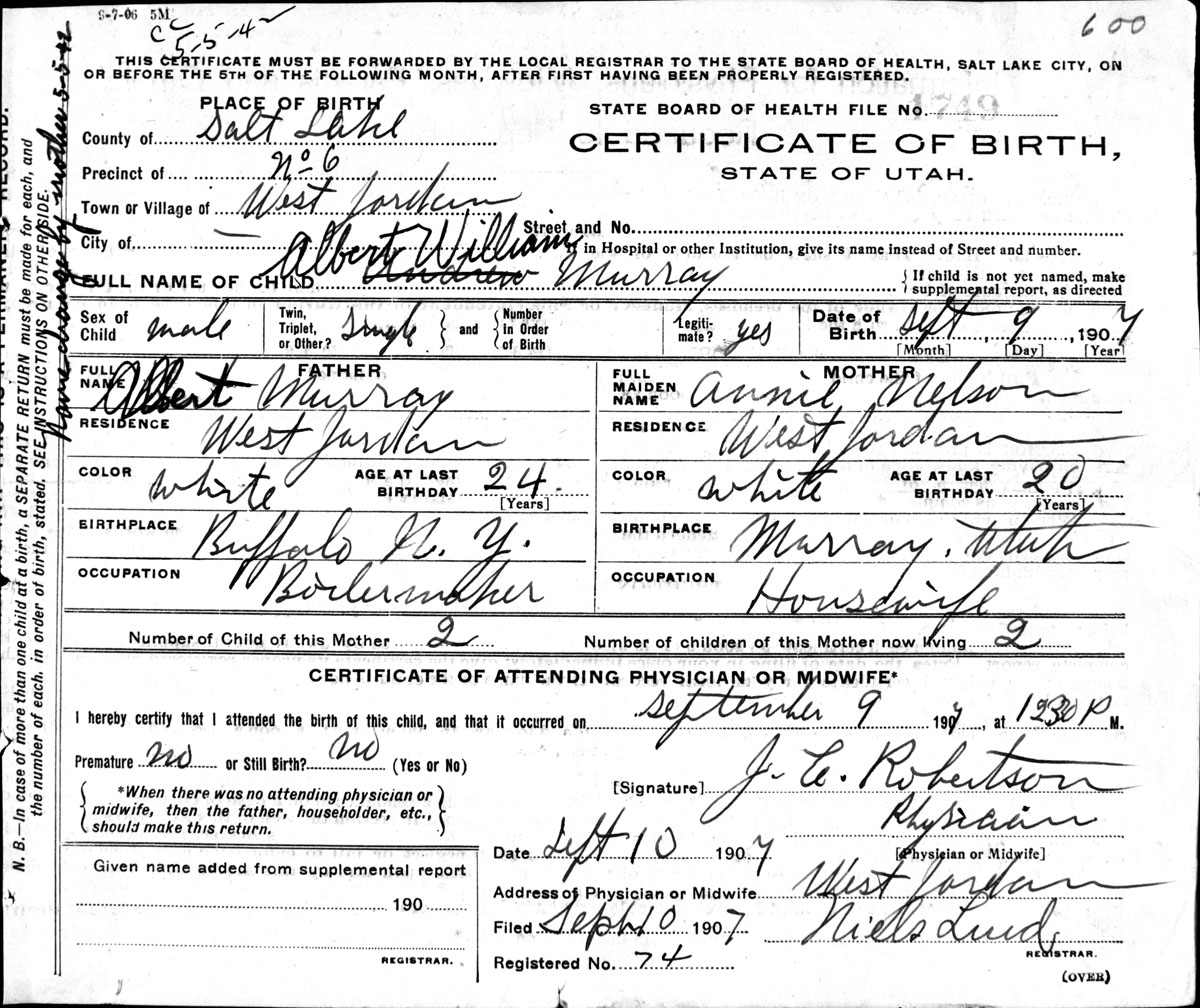 9-7-06 5M
CC
5-5-4-
600
THIS CERTIFICATE MUST BE FORWARDED BY THE LOCAL REGISTRAR TO THE STATE BOARD OF HEALTH, SALT LAKE CITY, ON
OR BEFORE THE 5TH OF THE FOLLOWING MONTH, AFTER FIRST HAVING BEEN PROPERLY REGISTERED.
PLACE OF BIRTH
County of Salt Lake
Precinct of No 6
Town or Village of West Jordan
City of
STATE BOARD OF HEALTH FILE No. 1749
CERTIFICATE OF BIRTH,
STATE OF UTAH.
Street and No.
If in Hospital or other Institution, give its name instead of Street and number.
Albert William
FULL NAME OF CHILD Andrew Murray
{If child is not yet named, make supplemental report, as directed
Sex of Child male
Twin, Triplet, or Other? Single } and { Number in Order of Birth
Legiti-mate? yes
Date of Birth Sept 9, 1907
[Month] [Day] [Year]
FATHER
FULL NAME Albert Murray
RESIDENCE West Jordan
COLOR white AGE AT LAST BIRTHDAY 24 [Years]
BIRTHPLACE Buffalo N. Y.
OCCUPATION Boilermaker
MOTHER
FULL MAIDEN NAME Annie Nelson
RESIDENCE West Jordan
COLOR white AGE AT LAST BIRTHDAY 20 [Years]
BIRTHPLACE Murray, Utah
OCCUPATION Housewife
Number of Child of this Mother 2 Number of children of this Mother now living 2
CERTIFICATE OF ATTENDING PHYSICIAN OR MIDWIFE*
I hereby certify that I attended the birth of this child, and that it occurred on September 9 1907, at 1230 P M.
Premature no or Still Birth? no (Yes or No)
{*When there was no attending physician or
midwife, then the father, householder, etc.,
should make this return.}
[Signature] J. E. Robertson
Physician
[Physician or Midwife]
Date Sept 10 1907
Address of Physician or Midwife West Jordan
Filed Sept 10 1907 Niels Lind
REGISTRAR.
Registered No. 74
(OVER)
Given name added from supplemental report
190
REGISTRAR.
N. B.—In case of more than one child at a birth, a SEPARATE RETURN must be made for each, and
the number of each, in order of birth, stated. SEE INSTRUCTIONS ON OTHER SIDE.
name change by mother 5-5-42